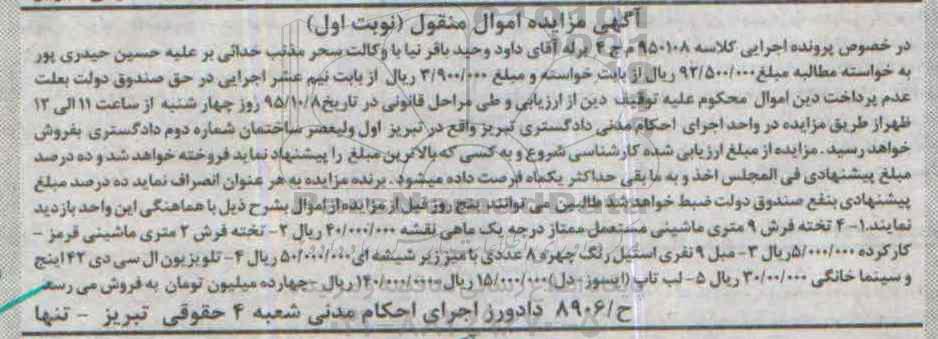 آگهی مزایده اموال منقول (نوبت اول)
در خصوص پرونده اجرایی کلاسه ۹۵۰۱۰۸ م ح ۴ برله آقای داود وحید باقر نیا با وکالت سحر مذقب خدائی بر علیه حسین حیدری پور
به خواسته مطالبه مبلغ ۹۲/۵۰۰/۰۰۰ ریال از بابت خواسته و مبلغ ۳/۹۰۰/۰۰۰ ریال از بابت نیم عشر اجرایی در حق صندوق دولت بعلت
عدم پرداخت دین اموال محکوم علیه توقیف دین از ارزیابی و طی مراحل قانونی در تاریخ ۹۵/۱۰/۸ روز چهار شنبه از ساعت ۱۱ الی ۱۲
ظهر از طریق مزایده در واحد اجرای احکام مدنی دادگستری تبریز واقع در تبریز اول ولیعصر ساختمان شماره دوم دادگستری بفروش
خواهد رسید . مزایده از مبلغ ارزیابی شده کارشناسی شروع و به کسی که بالاترین مبلغ را پیشنهاد نماید فروخته خواهد شد و ده درصد
مبلغ پیشنهادی فی المجلس اخذ و به ما بقی حداکثر یکماه فرصت داده میشود . برنده مزایده به هر عنوان انصراف نماید ده درصد مبلغ
پیشنهادی بنفع صندوق دولت ضبط خواهد شد طالبین می توانند پنج روز قبل از مزایده از اموال بشرح ذیل با هماهنگی این واحد بازدید
نمایند.۱- ۴ تخته فرش ۹ متری ماشینی مستعمل ممتاز درجه یک ماهی نقشه ۴۰/۰۰۰/۰۰۰ ریال ۲- تخته فرش ۲ متری ماشینی قرمز -
کارکرده ۵/۰۰۰/۰۰۰ریال ۳- مبل ۹ نفری استیل رنگ چهره ۸ عددی با میز زیر شیشه ای ۵۰/۰۰۰/۰۰۰ ریال ۴- تلویزیون ال سی دی ۴۲ اینچ
و سینما خانگی ۳۰/۰۰/۰۰۰ ریال ۵- لب تاپ (ایسوز - دل) ۱۵/۰۰۰/۰۰۰ ریال ۱۴۰/۰۰۰/۰۰۰ ریال - چهارده میلیون تومان به فروش می رسد
ح/۸۹۰۶ دادورز اجرای احکام مدنی شعبه ۴ حقوقی تبریز - تنها